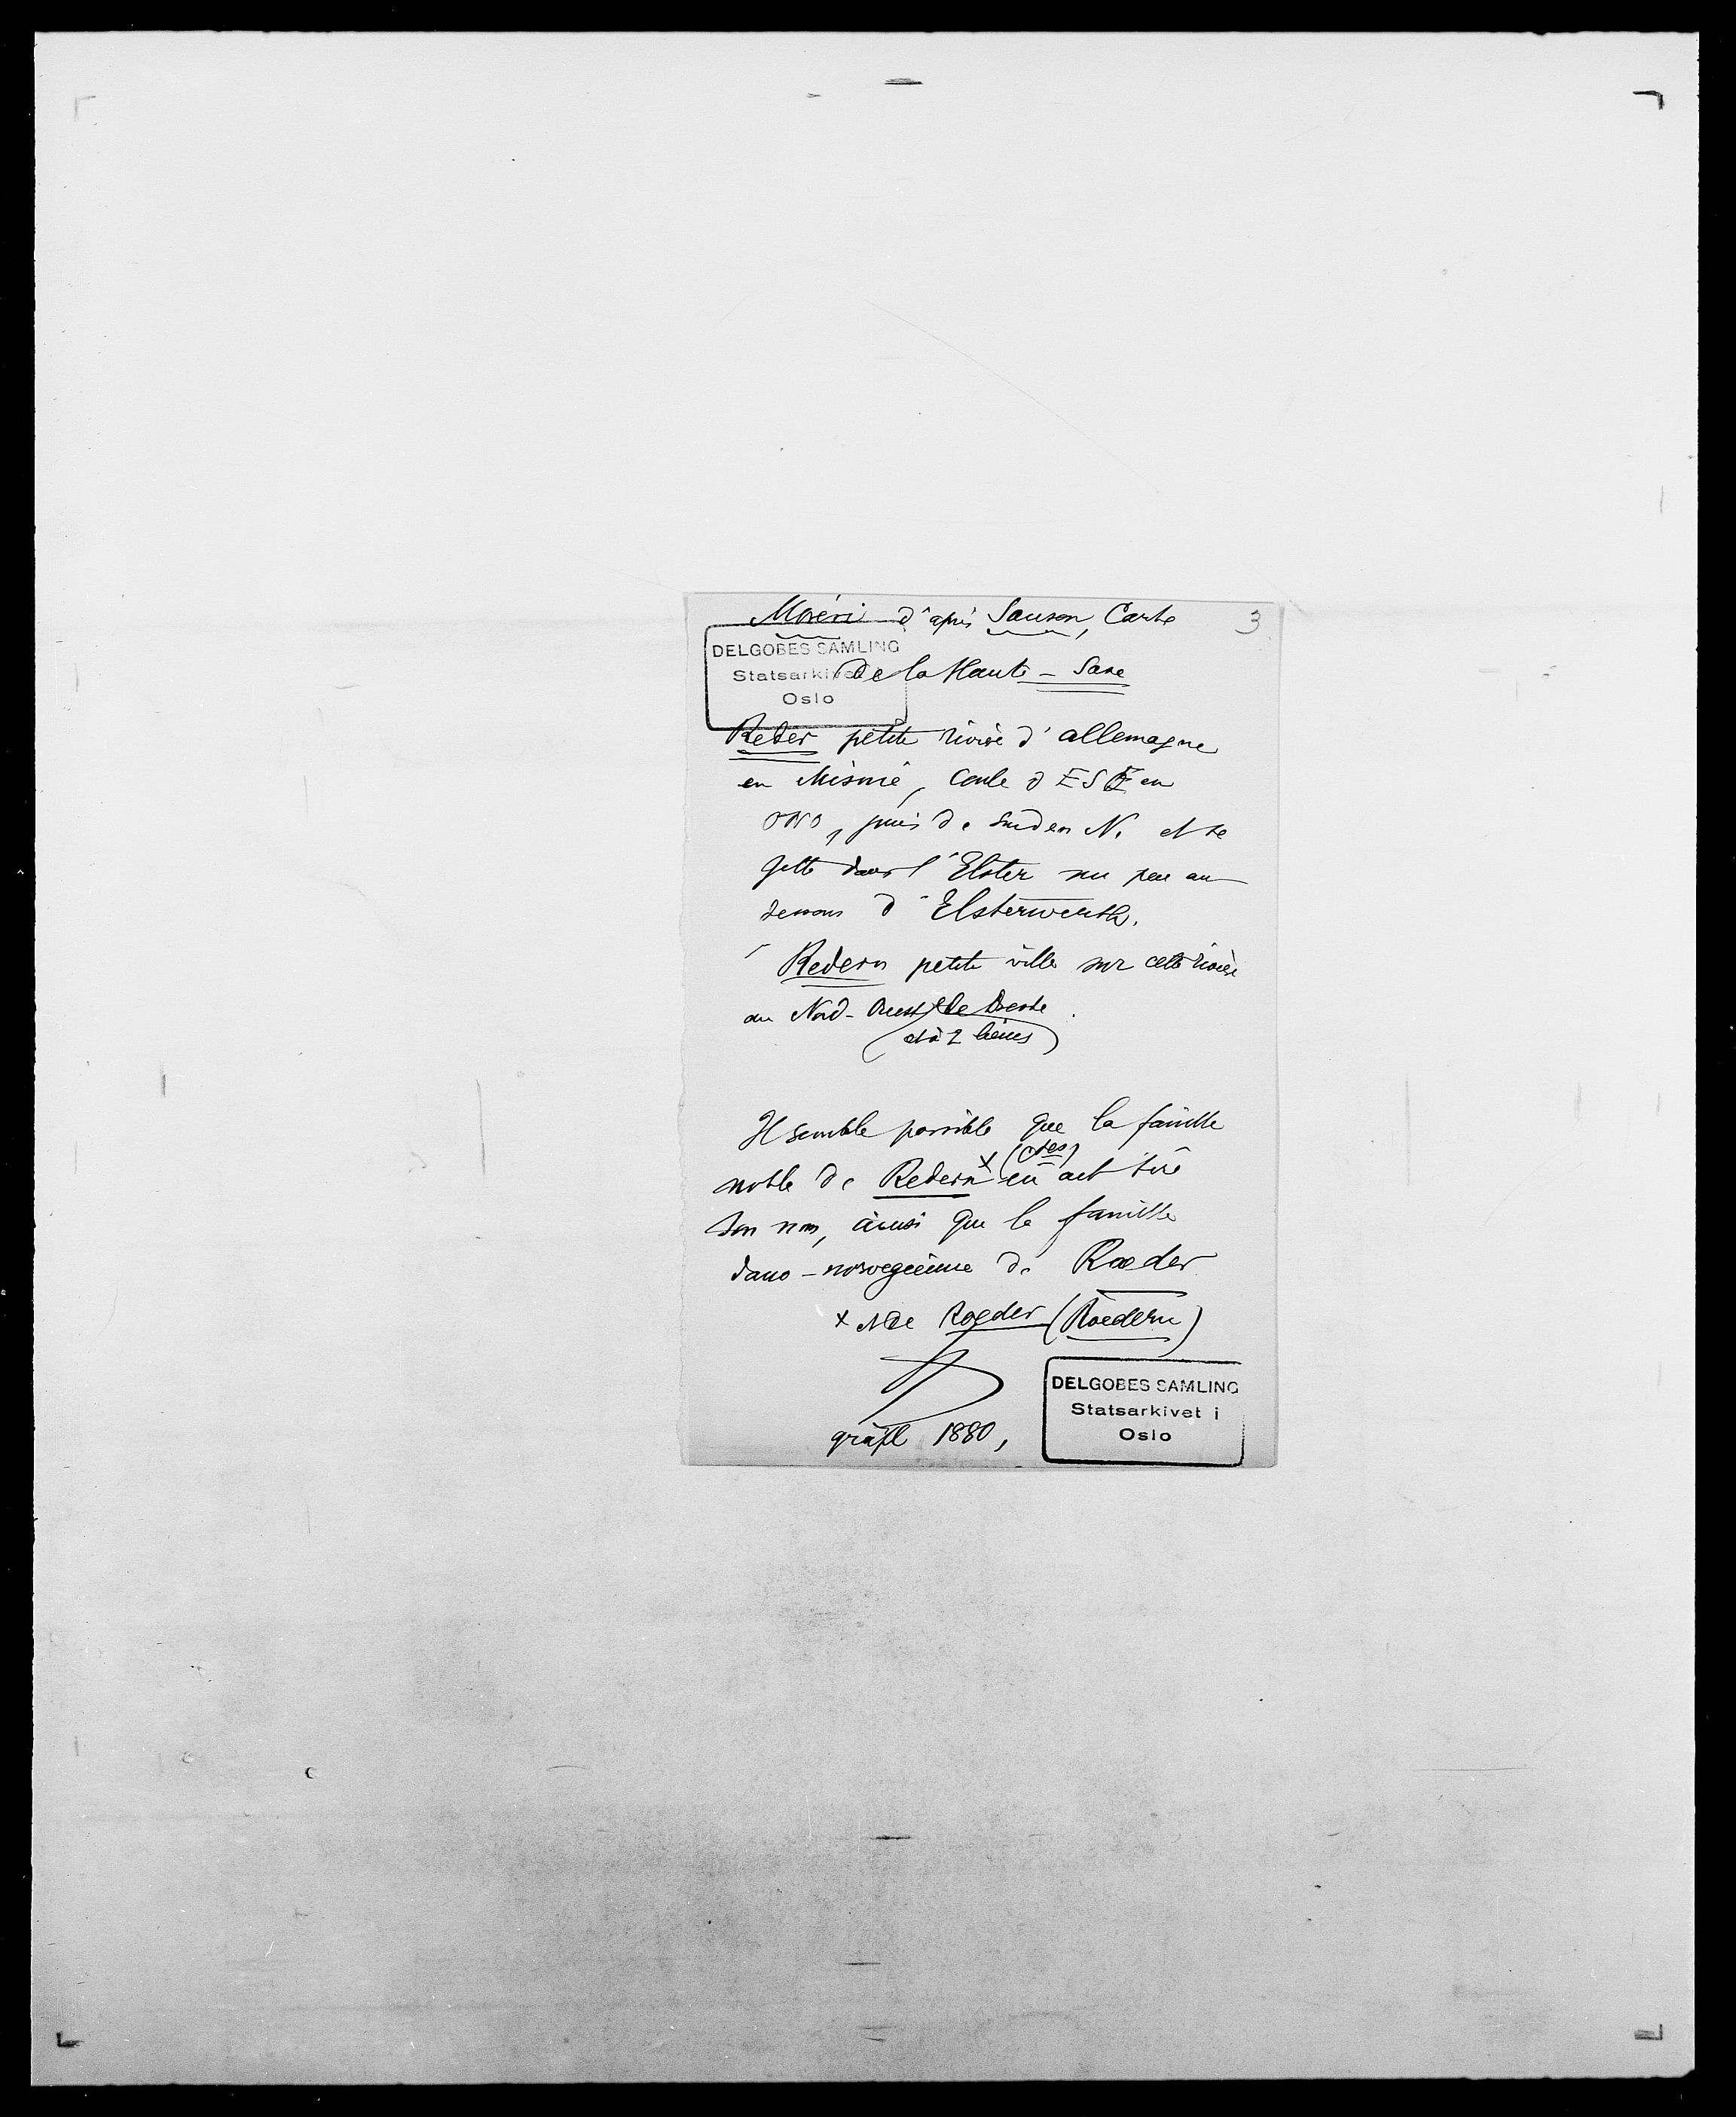 Moréri d'après Sanson, Carte
3
DELGOBES SAMLING
Statsarkivet i
Oslo
de la Haute-Saxe
Reder petite rivière d'allemagne
en Misnie, coule d'ESE en
ONO, puis de Sud en N. et se
jette dans l'Elster un peu au
dessous d'Elsterwerth.
Redern petite ville sur cette rivière
au Nord-Ouest de Dresde
et à 2 lieues
Il semble possible que la famille
noble de Redern x (ctes) en ait tiré
son nom, ainsi que la famille
dano-norvégienne de Roeder
x de Roeder (Roedern)
gräfl 1880,
DELGOBES SAMLING
Statsarkivet i
Oslo